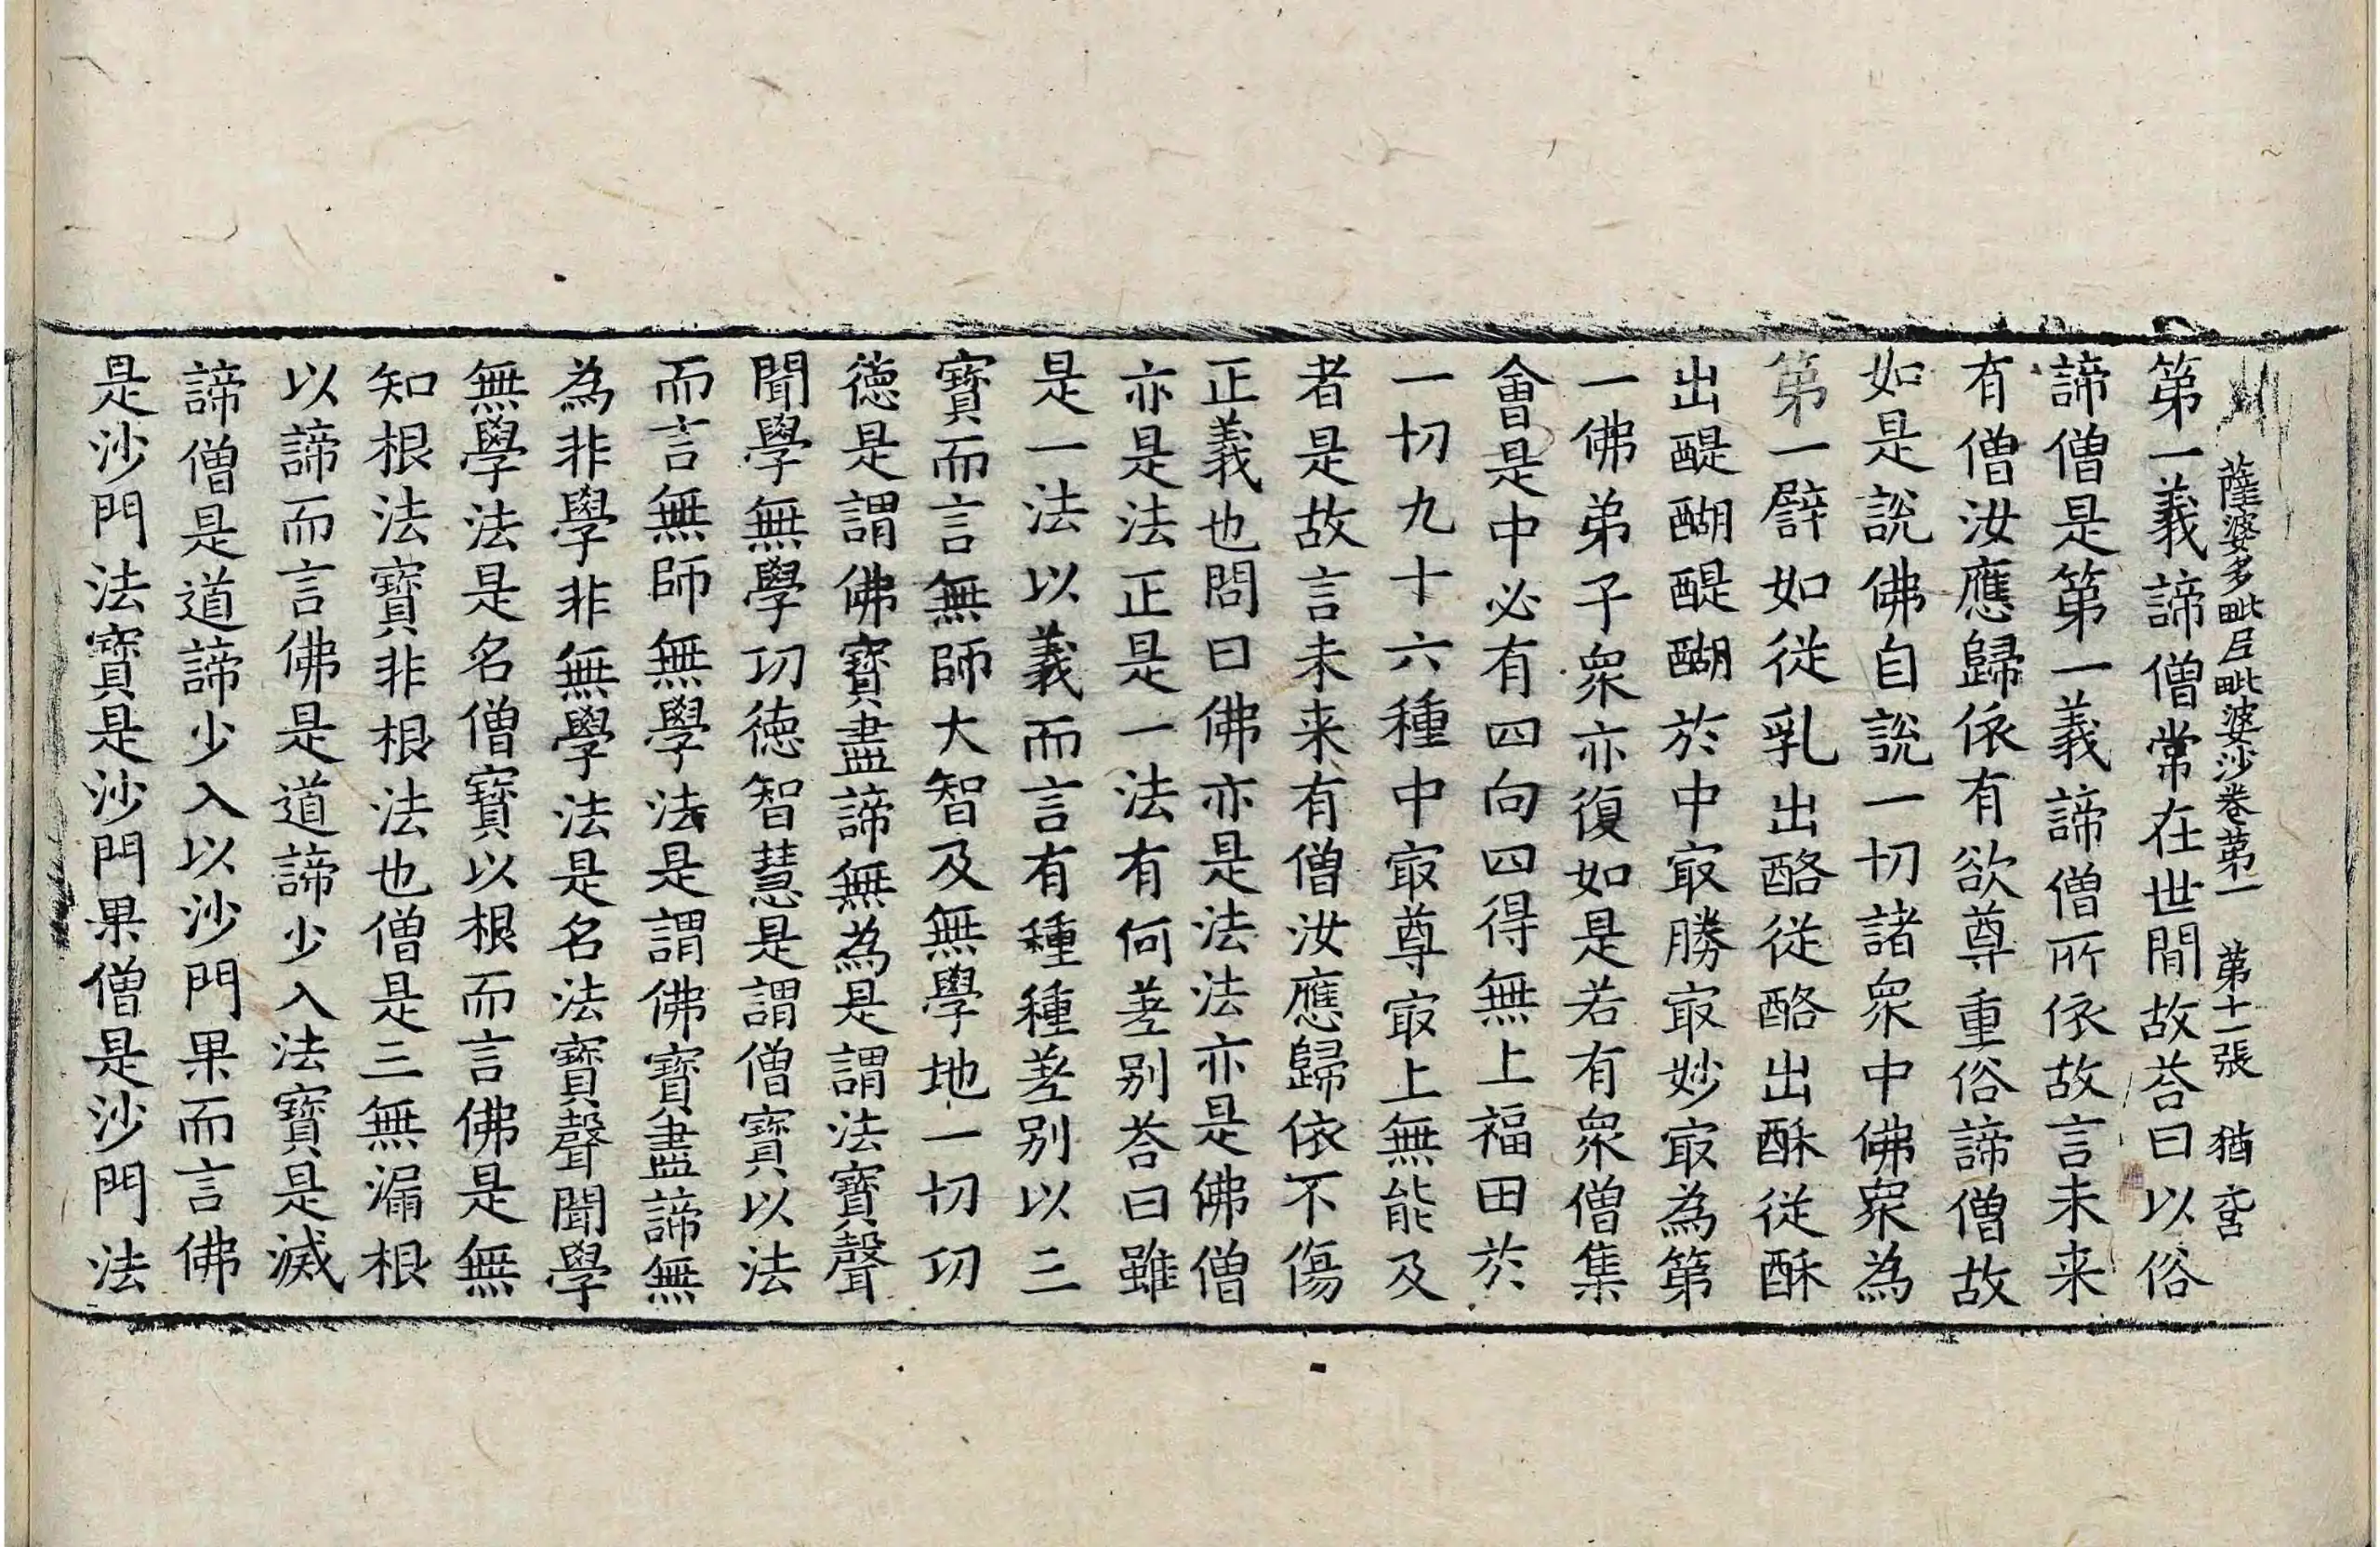 薩婆多毗尼毗婆沙卷第一 第十一張 猶
第一義諦僧常在世間故荅曰以俗
諦僧是第一義諦僧所依故言未来
有僧汝應歸依有欲尊重俗諦僧故
如是說佛自說一切諸衆中佛衆為
第一譬如從乳出酪從酪出酥從酥
出醍醐醍醐於中㝡勝㝡妙㝡為第
一佛弟子衆亦復如是若有衆僧集
會是中必有四向四得無上福田於
一切九十六種中㝡尊㝡上無能及
者是故言未来有僧汝應歸依不傷
正義也問曰佛亦是法法亦是佛僧
亦是法正是一法有何差别荅曰雖
是一法以義而言有種種差别以三
寶而言無師大智及無學地一切功
德是謂佛寶盡諦無為是謂法寶聲
聞學無學功德智慧是謂僧寶以法
而言無師無學法是謂佛寶盡諦無
為非學非無學法是名法寶聲聞學
無學法是名僧寶以根而言佛是無
知根法寶非根法也僧是三無漏根
以諦而言佛是道諦少入法寶是滅
諦僧是道諦少入以沙門果而言佛
是沙門法寶是沙門果僧是沙門法